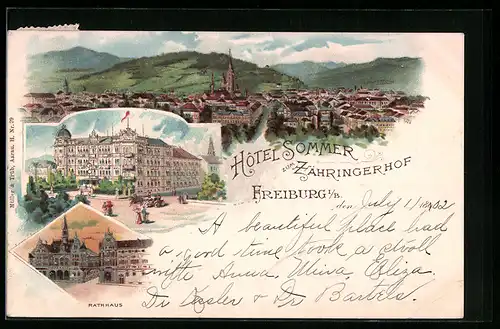 Müller & Trüb, Aarau. H. Nr. 79
HÔTEL SOMMER
ZUM ZÄHRINGERHOF
FREIBURG i/B.
den July 1/ 1902
A beautiful place had
a good time took a stroll
with Anna, Mina, Eliza.
Dr Kesler & Dr Bartels.
RATHHAUS